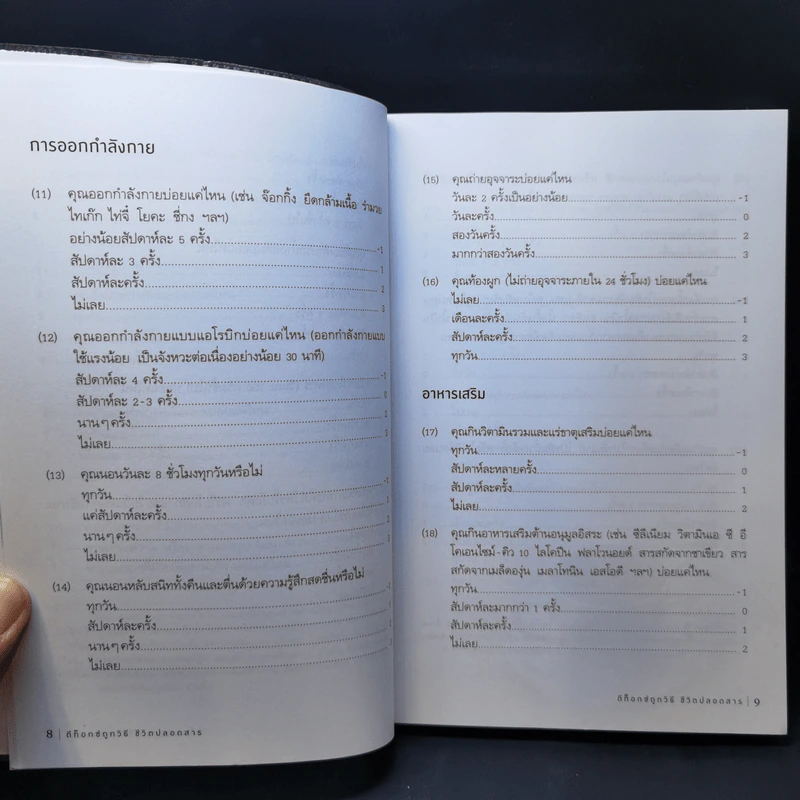 การออกกำลังกาย
(11) คุณออกกำลังกายบ่อยแค่ไหน (เช่น จ๊อกกิ้ง ยืดกล้ามเนื้อ รำมวย
ไทเก๊ก ไท่จี๋ โยคะ ชี่กง ฯลฯ)
อย่างน้อยสัปดาห์ละ 5 ครั้ง -1
สัปดาห์ละ 3 ครั้ง 1
สัปดาห์ละครั้ง 2
ไม่เลย 3
(12) คุณออกกำลังกายแบบแอโรบิกบ่อยแค่ไหน (ออกกำลังกายแบบ
ใช้แรงน้อย เป็นจังหวะต่อเนื่องอย่างน้อย 30 นาที)
สัปดาห์ละ 4 ครั้ง -1
สัปดาห์ละ 2-3 ครั้ง 0
นานๆครั้ง 2
ไม่เลย 3
(13) คุณนอนวันละ 8 ชั่วโมงทุกวันหรือไม่
ทุกวัน -1
แค่สัปดาห์ละครั้ง
นานๆครั้ง
ไม่เลย
(14) คุณนอนหลับสนิททั้งคืนและตื่นด้วยความรู้สึกสดชื่นหรือไม่
ทุกวัน
สัปดาห์ละครั้ง
นานๆครั้ง
ไม่เลย
8 | ดีท็อกซ์ถูกวิธี ชีวิตปลอดสาร
(15) คุณถ่ายอุจจาระบ่อยแค่ไหน
วันละ 2 ครั้งเป็นอย่างน้อย -1
วันละครั้ง 0
สองวันครั้ง 2
มากกว่าสองวันครั้ง 3
(16) คุณท้องผูก (ไม่ถ่ายอุจจาระภายใน 24 ชั่วโมง) บ่อยแค่ไหน
ไม่เลย -1
เดือนละครั้ง 1
สัปดาห์ละครั้ง 2
ทุกวัน 3
อาหารเสริม
(17) คุณกินวิตามินรวมและแร่ธาตุเสริมบ่อยแค่ไหน
ทุกวัน -1
สัปดาห์ละหลายครั้ง 0
สัปดาห์ละครั้ง 1
ไม่เลย 2
(18) คุณกินอาหารเสริมต้านอนุมูลอิสระ (เช่น ซีลีเนียม วิตามินเอ ซี อี
โคเอนไซม์-คิว 10 ไลโคปีน ฟลาโวนอยด์ สารสกัดจากชาเขียว สาร
สกัดจากเมล็ดองุ่น เมลาโทนิน เอสโอดี ฯลฯ) บ่อยแค่ไหน
ทุกวัน -1
สัปดาห์ละมากกว่า 1 ครั้ง 0
สัปดาห์ละครั้ง 1
ไม่เลย 2
ดีท็อกซ์ถูกวิธี ชีวิตปลอดสาร | 9